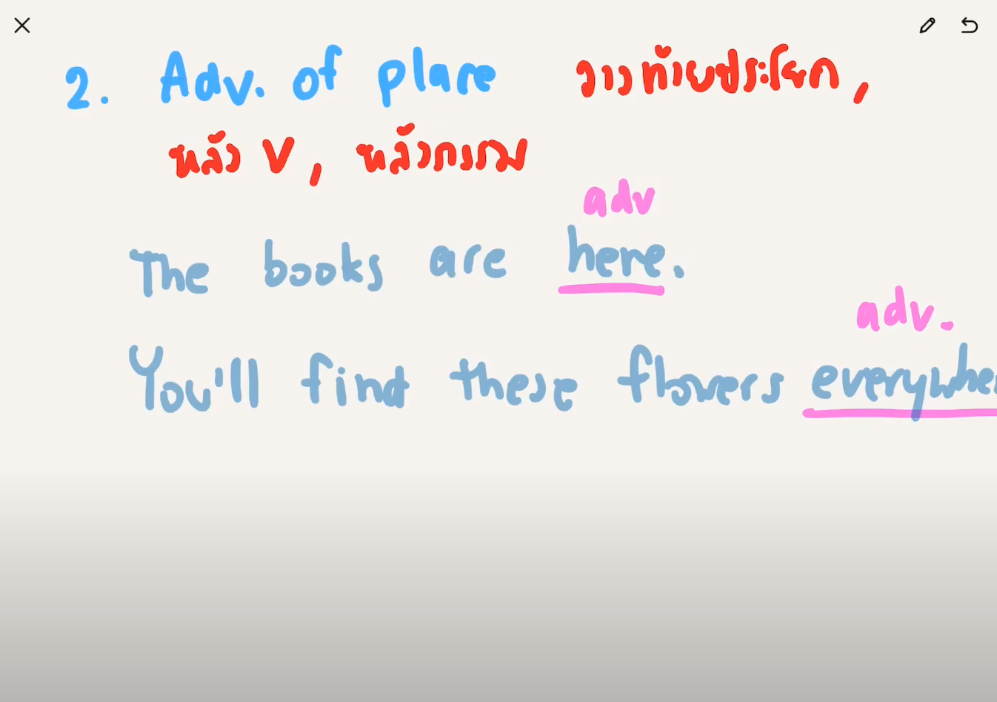 2. Adv. of place วางท้ายประโยค,
หลัง V, หลังกรรม
adv
The books are here.
adv.
You'll find these flowers everywhe